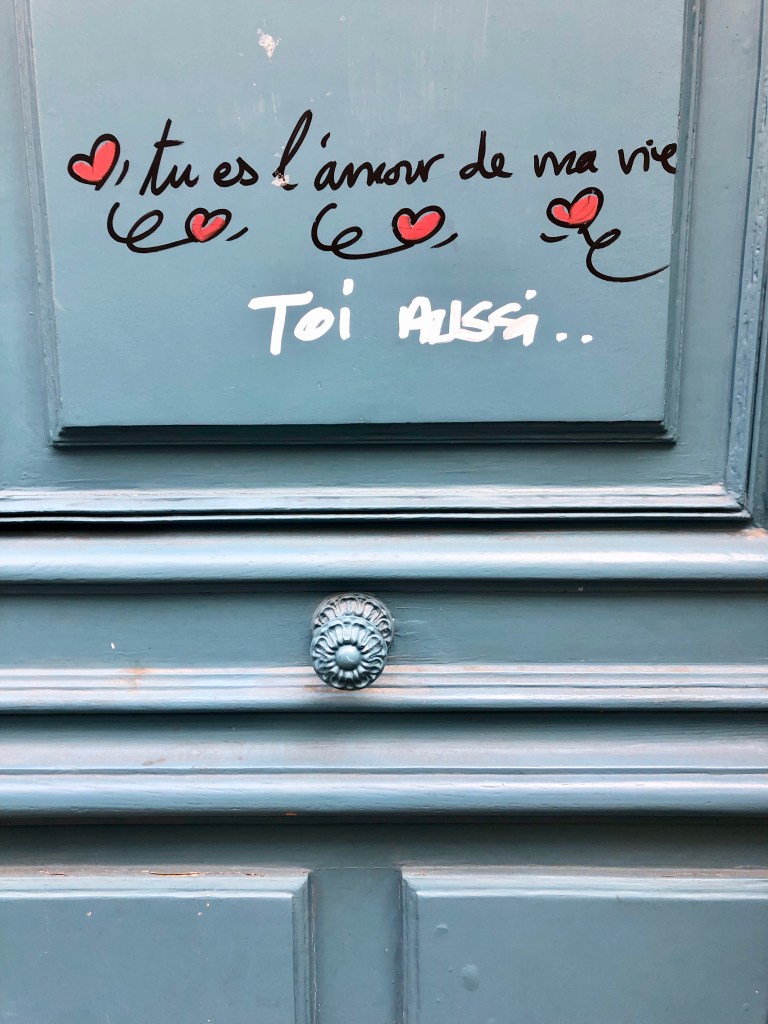 tu es l'amour de ma vie
Toi Aussi..